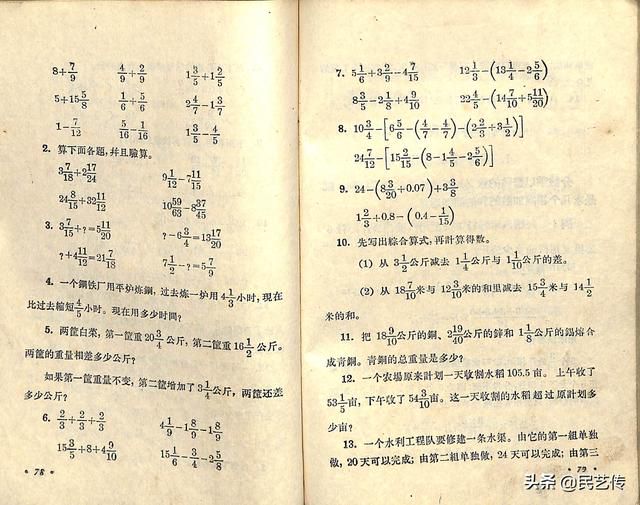 8+7/9 4/9+2/9 1 3/5+1 2/5
5+15 5/8 1/6+5/6 2 4/7-1 3/7
1-7/12 5/16-1/16 1 3/5-4/5
2. 算下面各題,并且驗算。
3 7/18+2 17/24 9 1/12-7 11/15
24 8/15+32 11/12 10 59/63-8 37/45
3. 3 7/15+?=5 11/20 ?-6 3/4=13 17/20
?+4 11/12=21 7/18 7 1/2-?=5 7/9
4. 一个鋼鉄厂用平炉炼鋼,过去炼一炉用4 1/3小时,現在
比过去縮短4/5小时。現在用多少时間?
5. 两筐白菜,第一筐重20 3/4公斤,第二筐重16 1/2公斤。
两筐的重量相差多少公斤?
如果第一筐重量不变,第二筐增加了3 1/4公斤,两筐还差
多少公斤?
6. 2/3+2/3+2/3 4 1/9-1 8/9-1 8/9
15 3/5+8+4 9/10 15 1/6-3/4-2 5/8
• 78 •
7. 5 1/6+3 2/9-4 7/15 12 1/3-(13 1/4-2 5/6)
8 3/5-2 1/8+4 9/10 22 4/5-(14 7/10+5 11/20)
8. 10 3/4-[6 5/6-(4/7-4/7)-(2 2/3+3 1/2)]
24 7/12-[15 2/15-(8-1 4/5-2 5/6)]
9. 24-(8 3/20+0.07)+3 3/8
1 2/3+0.8-(0.4-1/15)
10. 先写出綜合算式,再計算得数。
(1) 从3 1/2公斤减去1 1/4公斤与1 1/10公斤的差。
(2) 从18 7/10米与12 3/10米的和里减去15 3/4米与14 1/2
米的和。
11. 把18 9/10公斤的銅、2 19/40公斤的鋅和1 1/8公斤的錫熔合
成青銅。青銅的总重量是多少?
12. 一个农場原来計划一天收割水稻105.5亩。上午收了
53 1/5亩,下午收了54 3/10亩。这一天收割的水稻超过原計划多
少亩?
13. 一个水利工程队要修建一条水渠。由它的第一組单独
做,20天可以完成;由第二組单独做,24天可以完成;由第三
• 79 •
头条 @民艺传